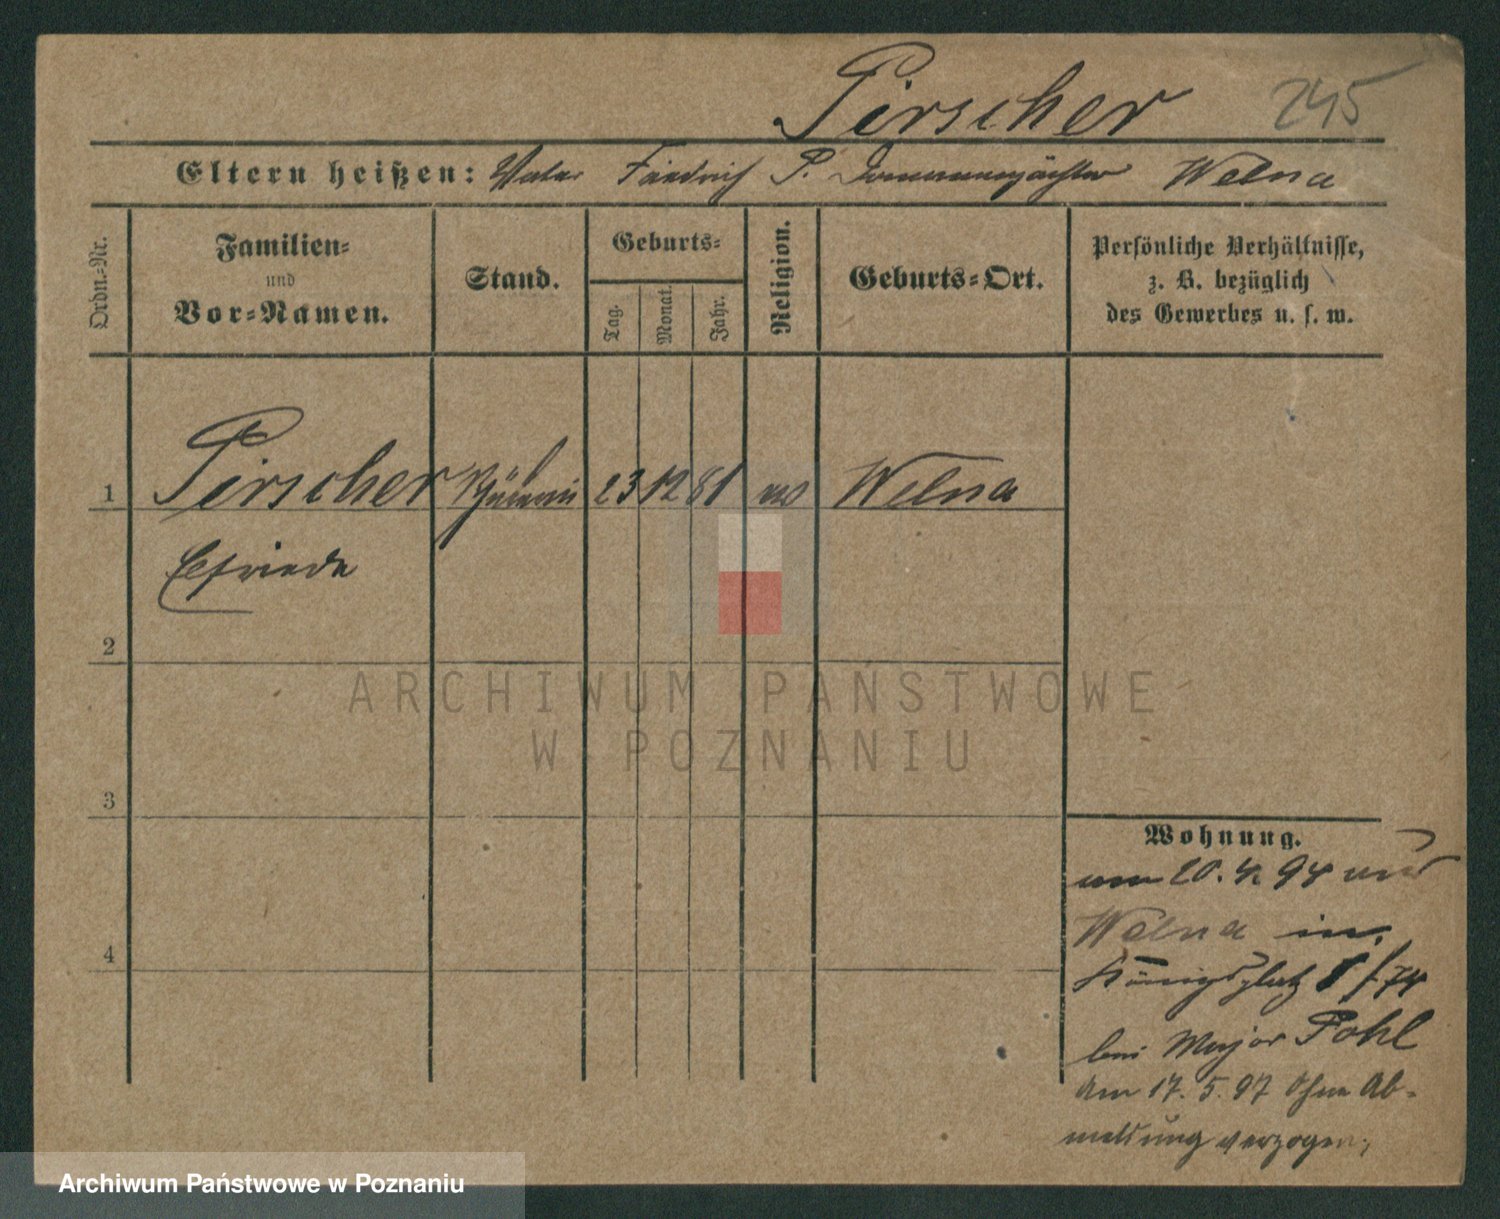 Pirscher 245
Eltern heißen: Vater Friedrich P. Domainenpächter Welna
Ordn.-Nr.
Familien-
und
Vor-Namen.
Stand.
Geburts-
Tag.
Monat.
Jahr.
Religion.
Geburts-Ort.
Persönliche Verhältnisse,
z. B. bezüglich
des Gewerbes u. s. w.
1 Pirscher Schülerin 23 12 81 ev Welna
Efriede
2
3
4
Wohnung.
am 20.4 94 aus
Welna in
Königsplatz 74
bei Major Pohl
Am 17. 5. 97 ohne Ab-
meldung verzogen.
ARCHIWUM PAŃSTWOWE
W POZNANIU
Archiwum Państwowe w Poznaniu